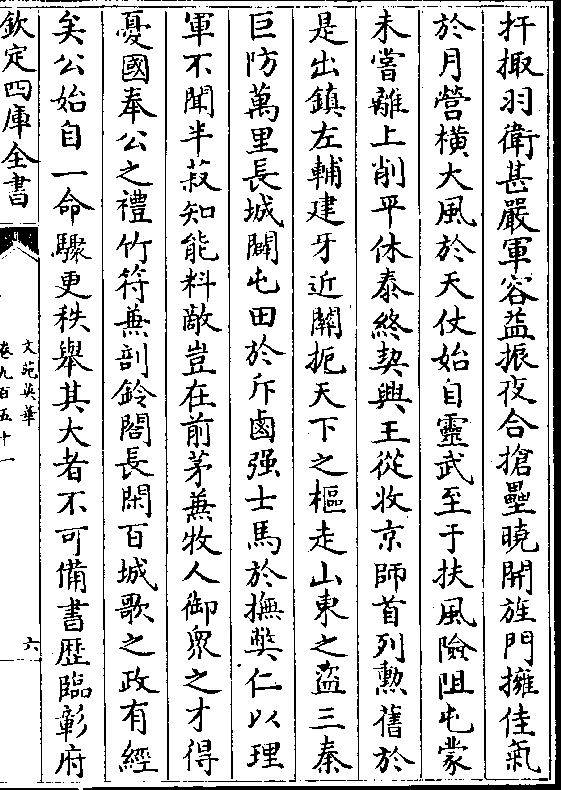 扞掫羽衛甚嚴軍容益振夜合搶壘曉開旌門擁佳氣
於月營橫大風於天仗始自靈武至于扶風險阻屯蒙
未嘗離上削平休泰終契興王從收京師首列勲舊於
是出鎮左輔建牙近關扼天下之樞走山東之盜三秦
巨防萬里長城闢屯田於斥鹵强士馬於撫獘仁以理
軍不聞半菽知能料敵豈在前茅無牧人御衆之才得
憂國奉公之禮竹符兼剖鈴閤長閑百城歌之政有經
矣公始自一命驟更秩舉其大者不可備書歴臨彰府
欽定四庫全書
文苑英華
卷九百五十一
六